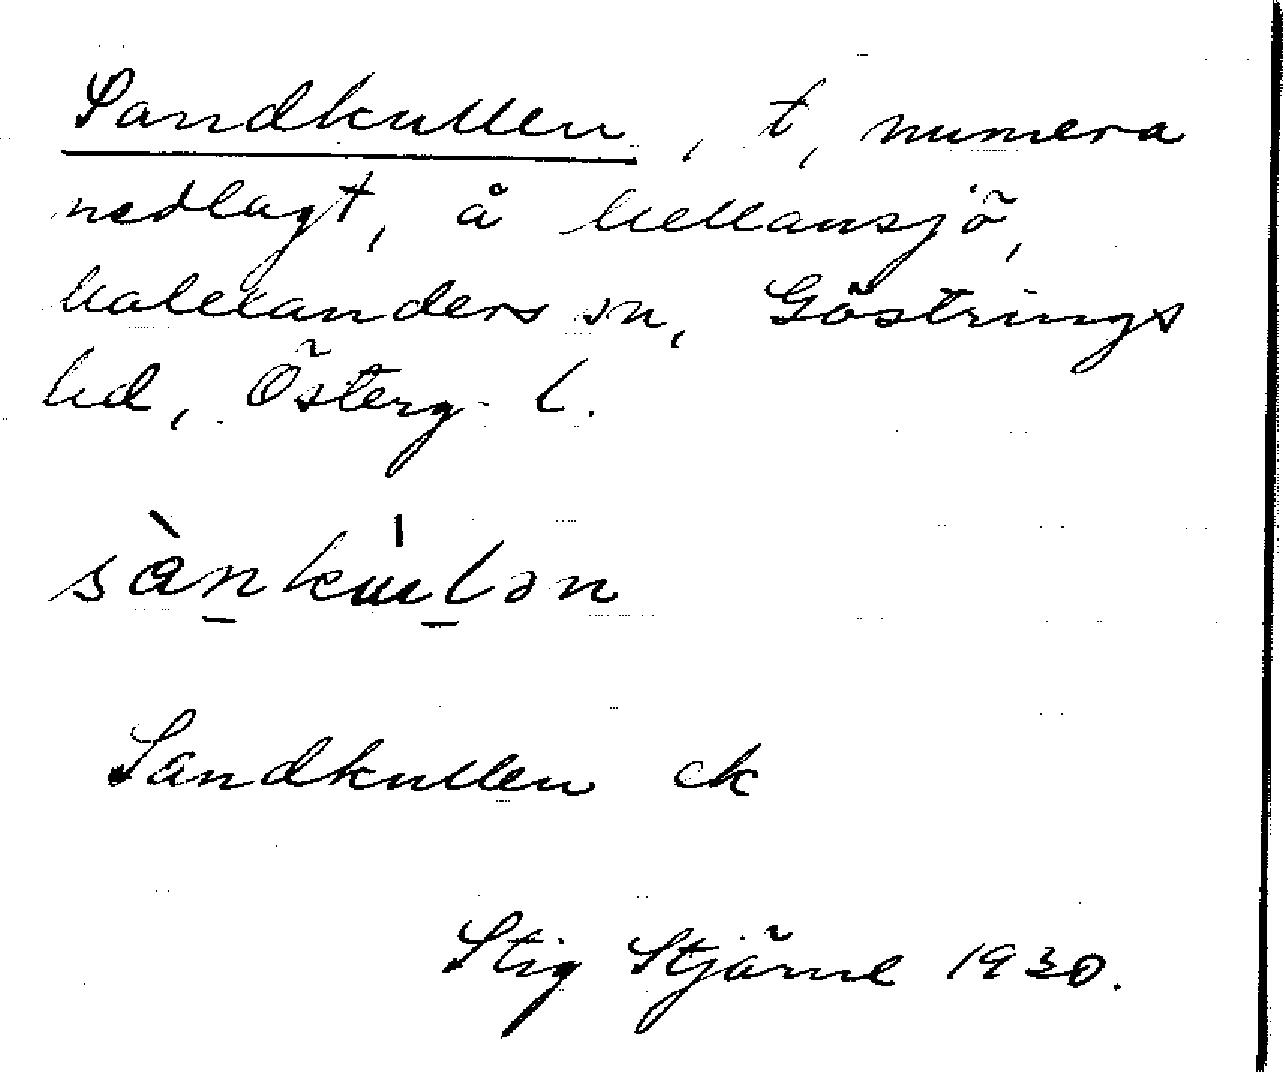 Sandkullen, t, numera
nedlagt, å Hellansjö,
Kallanders sn, Göstrings
hd, Österg. l.
sànkúlən
Sandkullen ek
Stig Stjärne 1930.